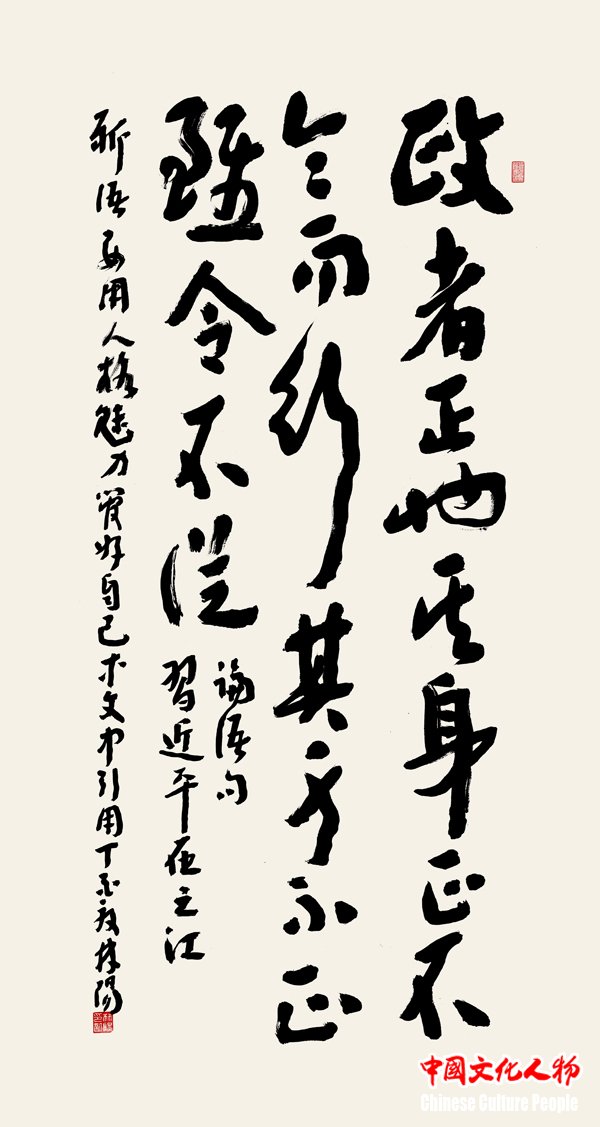 政者正也其身正不
令而行其身不正
雖令不從
論語句
習近平在之江
新語要用人格魅力管好自己本文中引用丁酉林陽
中國文化人物
Chinese Culture People